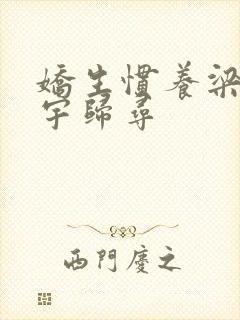 嬌生慣養梁
宇歸尋
西門慶之